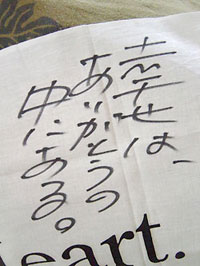 幸せは、
ありがとうの
中にある。
Heart.